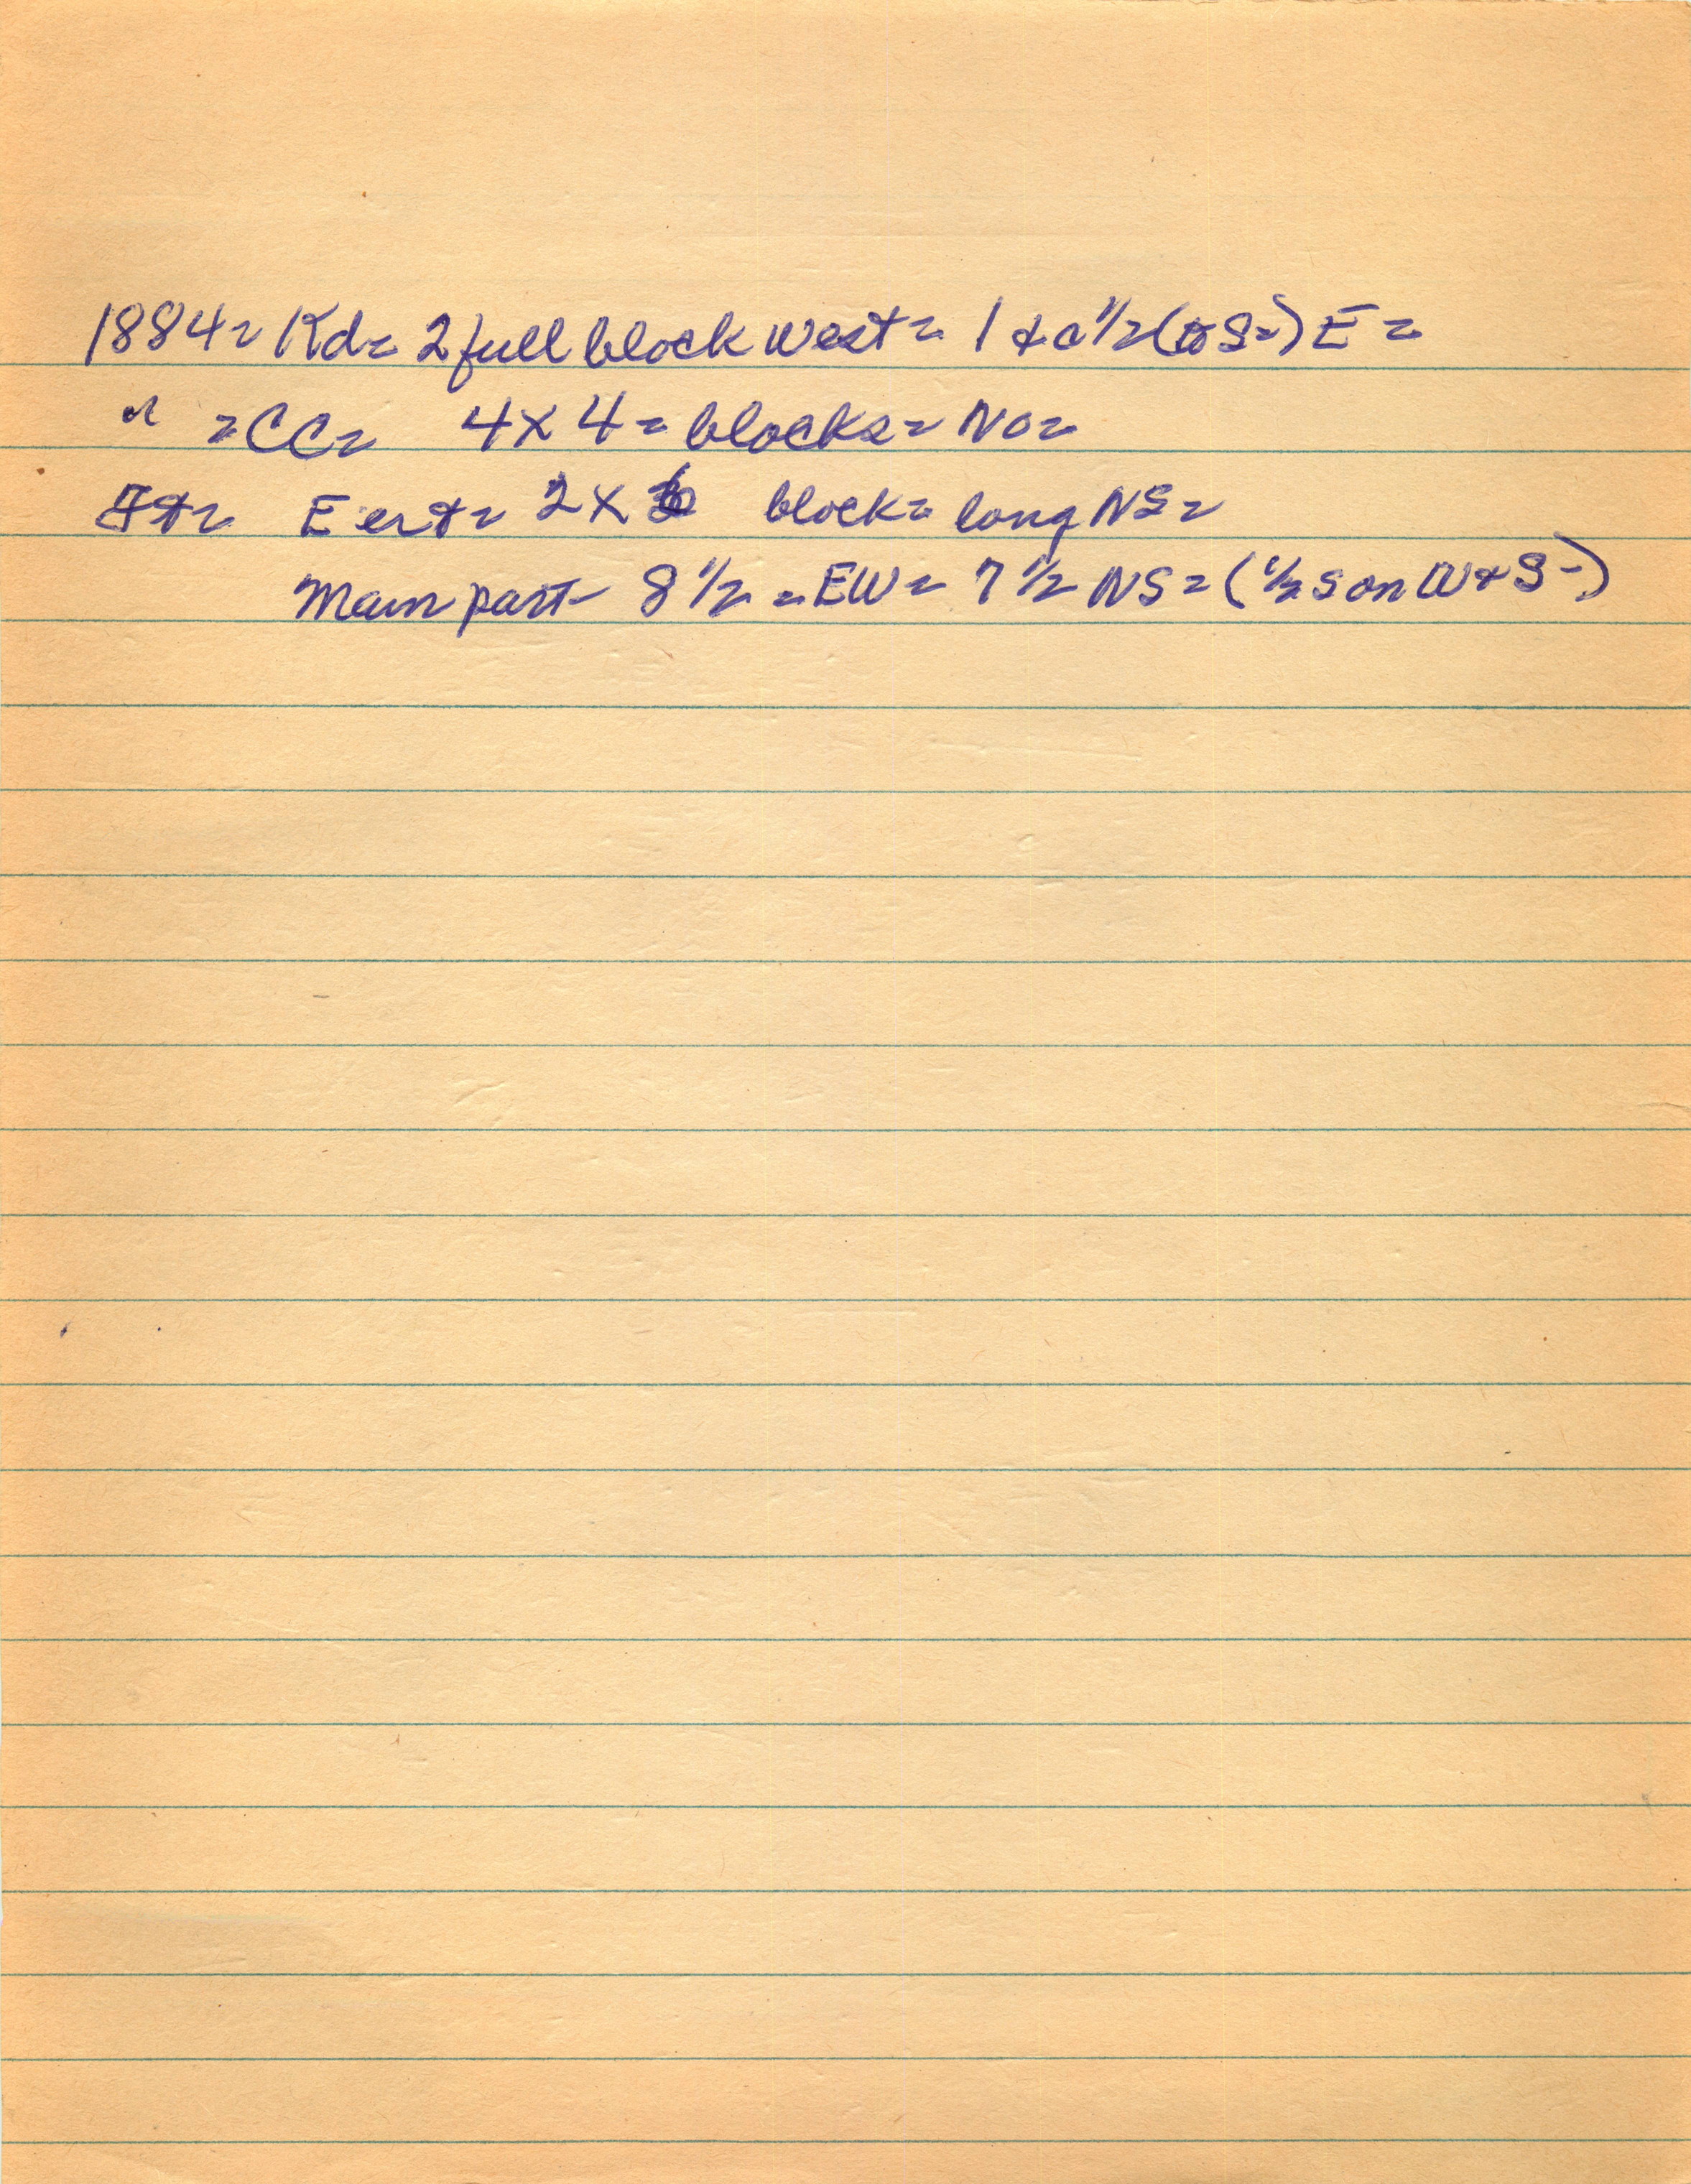 1884= Kd= 2 full block West= 1 & a 1/2 (to S=) E=
" =CC= 4 X 4= blocks= No=
Ft= E ext= 2 X 6 block= long NS=
Main part- 8 1/2 = EW= 7 1/2 NS= (1/2 s on W & S-)